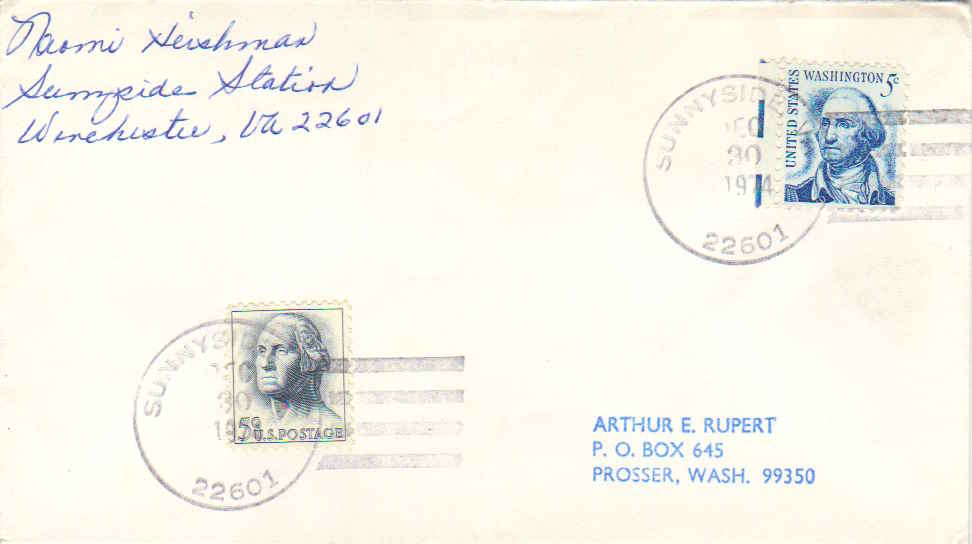 Naomi Heishman
Sunnyside Station
Winchester, VA 22601
UNITED STATES
WASHINGTON 5c
SUNNYSIDE
DEC
30
1974
22601
SUNNYSIDE
DEC
30
22601
5c
U.S. POSTAGE
ARTHUR E. RUPERT
P. O. BOX 645
PROSSER, WASH. 99350